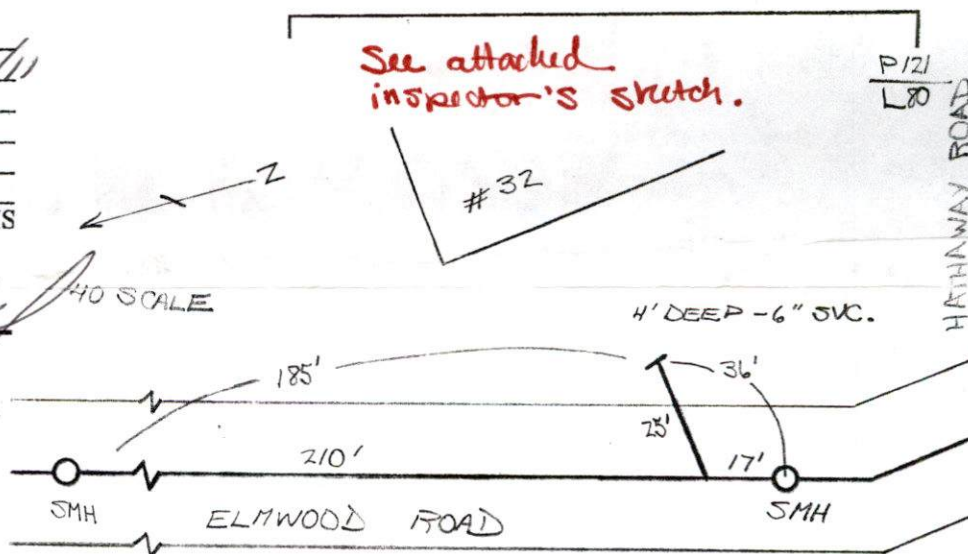 See attached
inspector's sketch.
P 121
L 80
HATHAWAY ROAD
N
# 32
S
40 SCALE
4' DEEP - 6" SVC.
185'
36'
25'
210'
17'
SMH
ELMWOOD ROAD
SMH